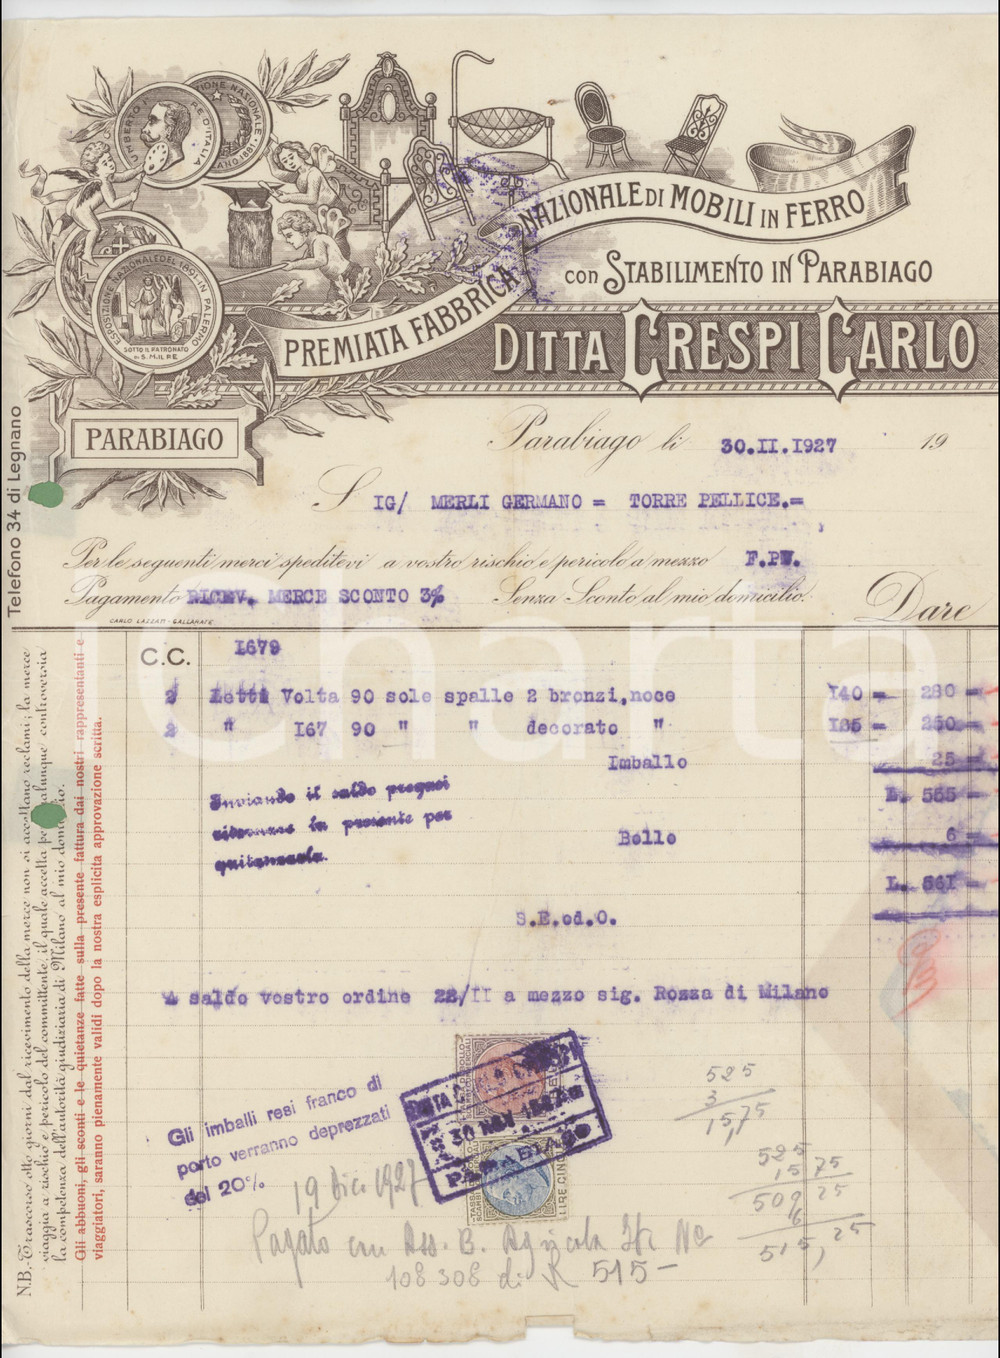 UMBERTO I RE D'ITALIA
NAZIONALE 1891
ESPOSIZIONE NAZIONALE DEL 1891 IN PALERMO
SOTTO IL PATRONATO
DI S.M. IL RE
PREMIATA FABBRICA NAZIONALE DI MOBILI IN FERRO
CON STABILIMENTO IN PARABIAGO
DITTA CRESPI CARLO
PARABIAGO
Telefono 34 di Legnano
Parabiago li 30.II.1927 19
S IG/ MERLI GERMANO = TORRE PELLICE.=
Per le seguenti merci speditevi a vostro rischio e pericolo a mezzo F.PV.
Pagamento RICEV. MERCE SCONTO 3% Senza Sconto al mio domicilio. Dare
CARLO LAZZATI - GALLARATE
C.C. I679
2 Letti Volta 90 sole spalle 2 bronzi,noce I40 = 280 =
2 " I67 90 " " decorato "
Imballo 25 =
Inviando il saldo pregasi
ritornare la presente per
quitanzarla.
L. 565
Bollo 6 =
L. 561 =
S.E.od.O.
A saldo vostro ordine 22/II a mezzo sig. Rozza di Milano
Gli imballi resi franco di
porto verranno deprezzati
del 20%
DITTA CARLO CRESPI
30 NOV 1927
PARABIAGO
LIRE CINQ
525
3
15,75
525
15 75
509 25
6
515, 25
19 Dic 1927
Pagato con Ass. B. Agricola It. No
108308 di £ 515-
N.B. - Trascorso otto giorni dal ricevimento della merce non si accettano reclami; la merce
viaggia a rischio e pericolo del committente, il quale accetta per qualunque controversia
la competenza dell'autorità giudiziaria di Milano al mio domicilio.
Gli abbuoni, gli sconti e le quietanze fatte sulla presente fattura dai nostri rappresentanti e
viaggiatori, saranno pienamente validi dopo la nostra esplicita approvazione scritta.
Charta